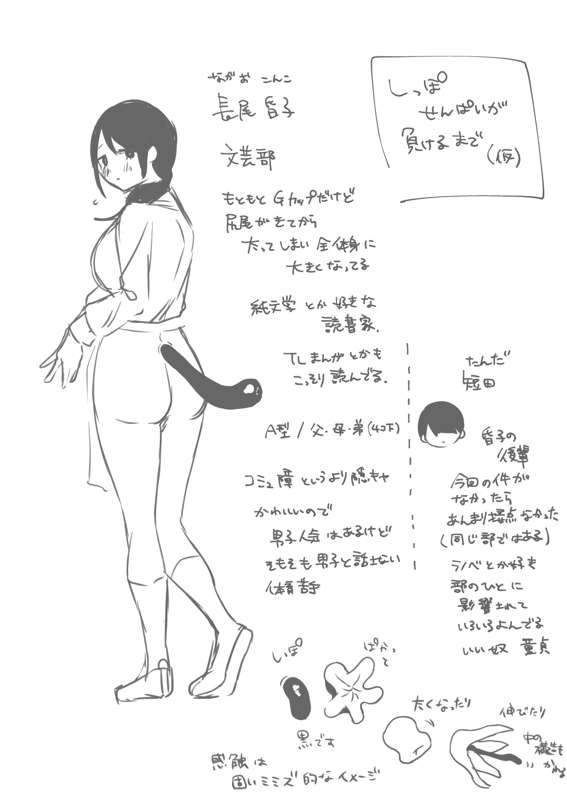 しっぽ
せんぱいが
負けるまで
(仮)
ながお こんこ
長尾 昏子
文芸部
もともと Gカップだけど
尻尾がきてから
太ってしまい 全体身に
大きくなってる
純文学 とか 好きな
読書家.
TLまんがとかも
こっそり 読んでる.
A型 / 父・母・弟(4コ下)
コミュ障 というより 陰キャ
かわいいので
男子人気はあるけど
そもそも男子と話さない
たんだ
短田
昏子の
後輩
今回の件が
なかったら
あんまり接点なかった
(同じ部ではある)
ラノベとか好き
部のひとに
影響されて
いろいろよんでる
いい奴 童貞
しっぽ
ぱかって
黒です
太くなったり
伸びたり
中の
構造も
かわる
感触は
固いミミズ的なイメージ